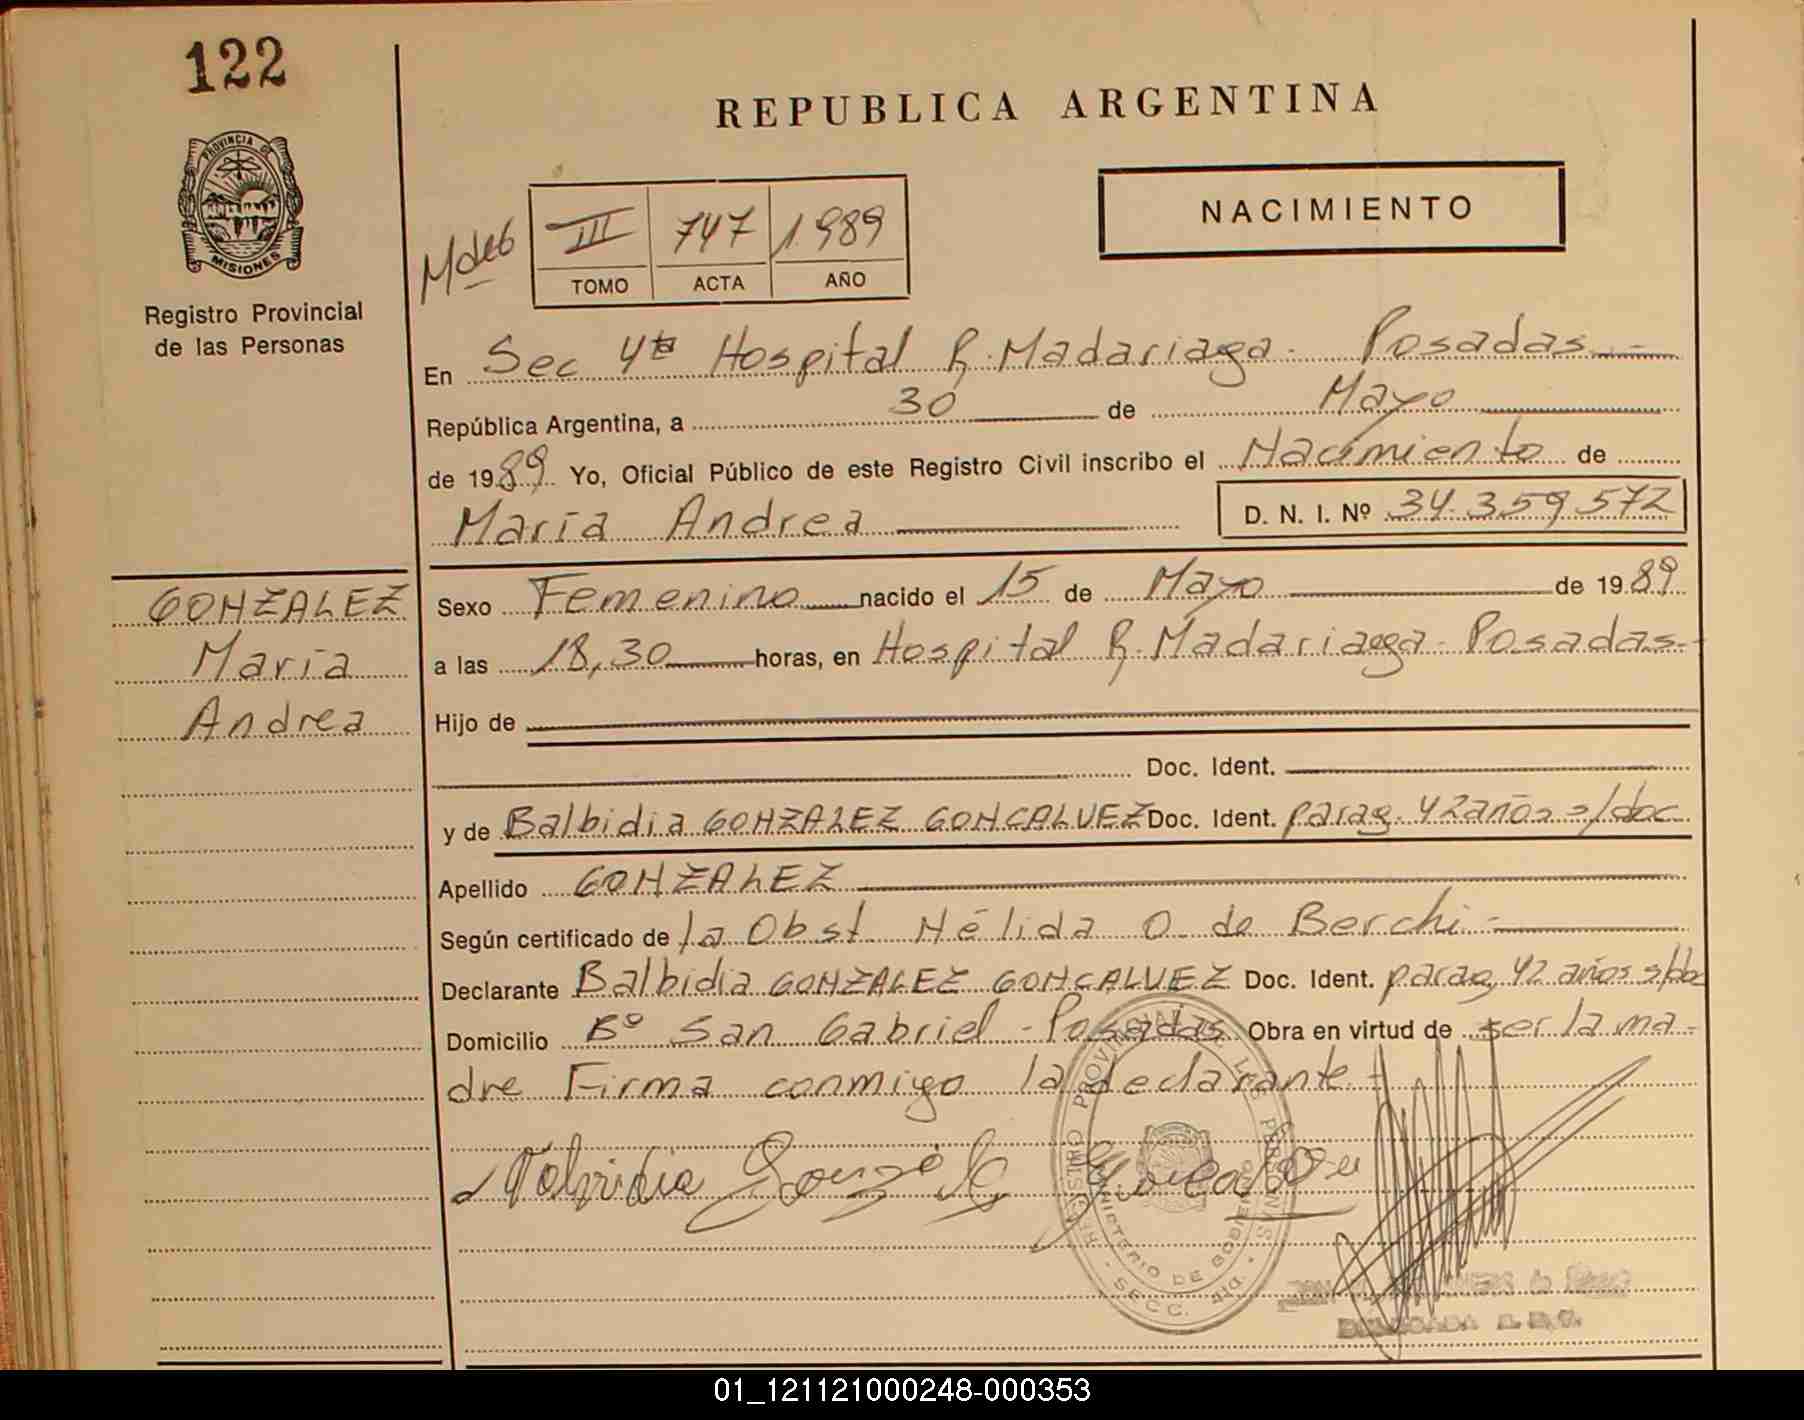 122
REPUBLICA ARGENTINA
PROVINCIA DE
MISIONES
NACIMIENTO
III 747 1989
TOMO ACTA AÑO
Registro Provincial
de las Personas
En Sec 4ta Hospital R. Madariaga - Posadas
República Argentina, a 30 de Mayo
de 1989 Yo, Oficial Público de este Registro Civil inscribo el Nacimiento de
María Andrea D. N. I. Nº 34.359.572
GONZALEZ
María
Andrea
Sexo Femenino nacido el 15 de Mayo de 1989
a las 18,30 horas, en Hospital R. Madariaga - Posadas-
Hijo de
Doc. Ident.
y de Balbidia GONZALEZ GONCALVEZ Doc. Ident. parag. 42 años s/doc
Apellido GONZALEZ
Según certificado de la Obst Nélida O de Berchi -
Declarante Balbidia GONZALEZ GONCALVEZ Doc. Ident. parag 42 años s/doc
Domicilio Bº San Gabriel - Posadas Obra en virtud de ser la ma-
dre Firma conmigo la declarante -
REGISTRO PROVINCIAL DE LAS PERSONAS
MINISTERIO DE GOBIERNO
SECC. 4ta.
01_121121000248-000353